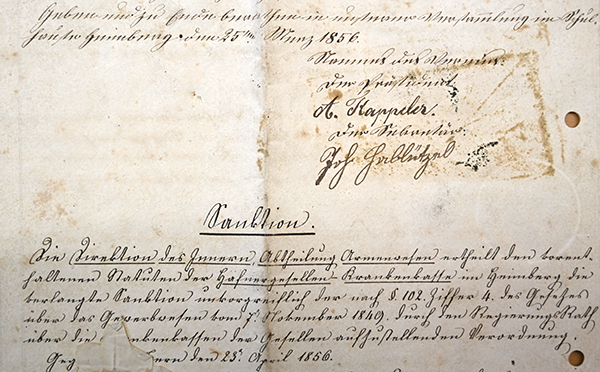 Geben und zu Ende berathen in unserer Versammlung im Schul-
hause Heimberg den 25ten Merz 1856.
Namens des Vereins:
Der Präsident
A. Kappeler.
Der Sekretär:
Joh Hablützel
Sanktion.
Die Direktion des Innern, Abtheilung Armenwesen ertheilt den vorent-
haltenen Statuten der Hafnergesellen-Krankenkasse im Heimberg die
verlangte Sanktion unvorgreiflich der nach § 102. Ziffer 4. des Gesetzes
über das Gewerbwesen vom 7. November 1849. durch den Regierungs Rath
über die nkenkassen der Gesellen aufzustellenden Verordnung.
Geg ern den 23. April 1856.